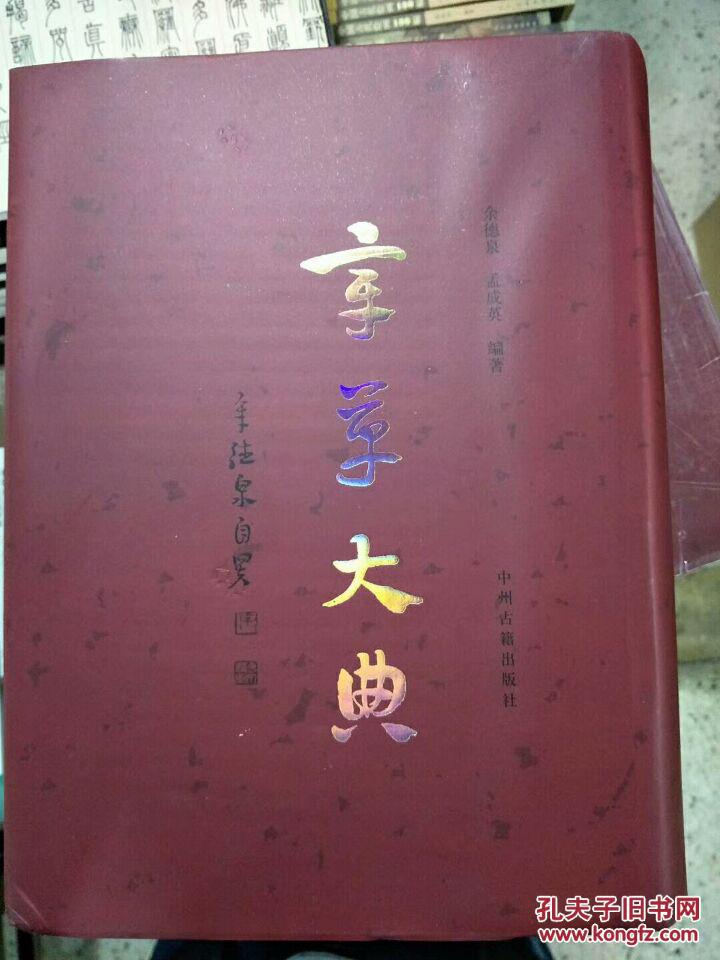 余德泉 孟成英 编著
章草大典
余德泉自署
中州古籍出版社
孔夫子旧书网
www.kongfz.com